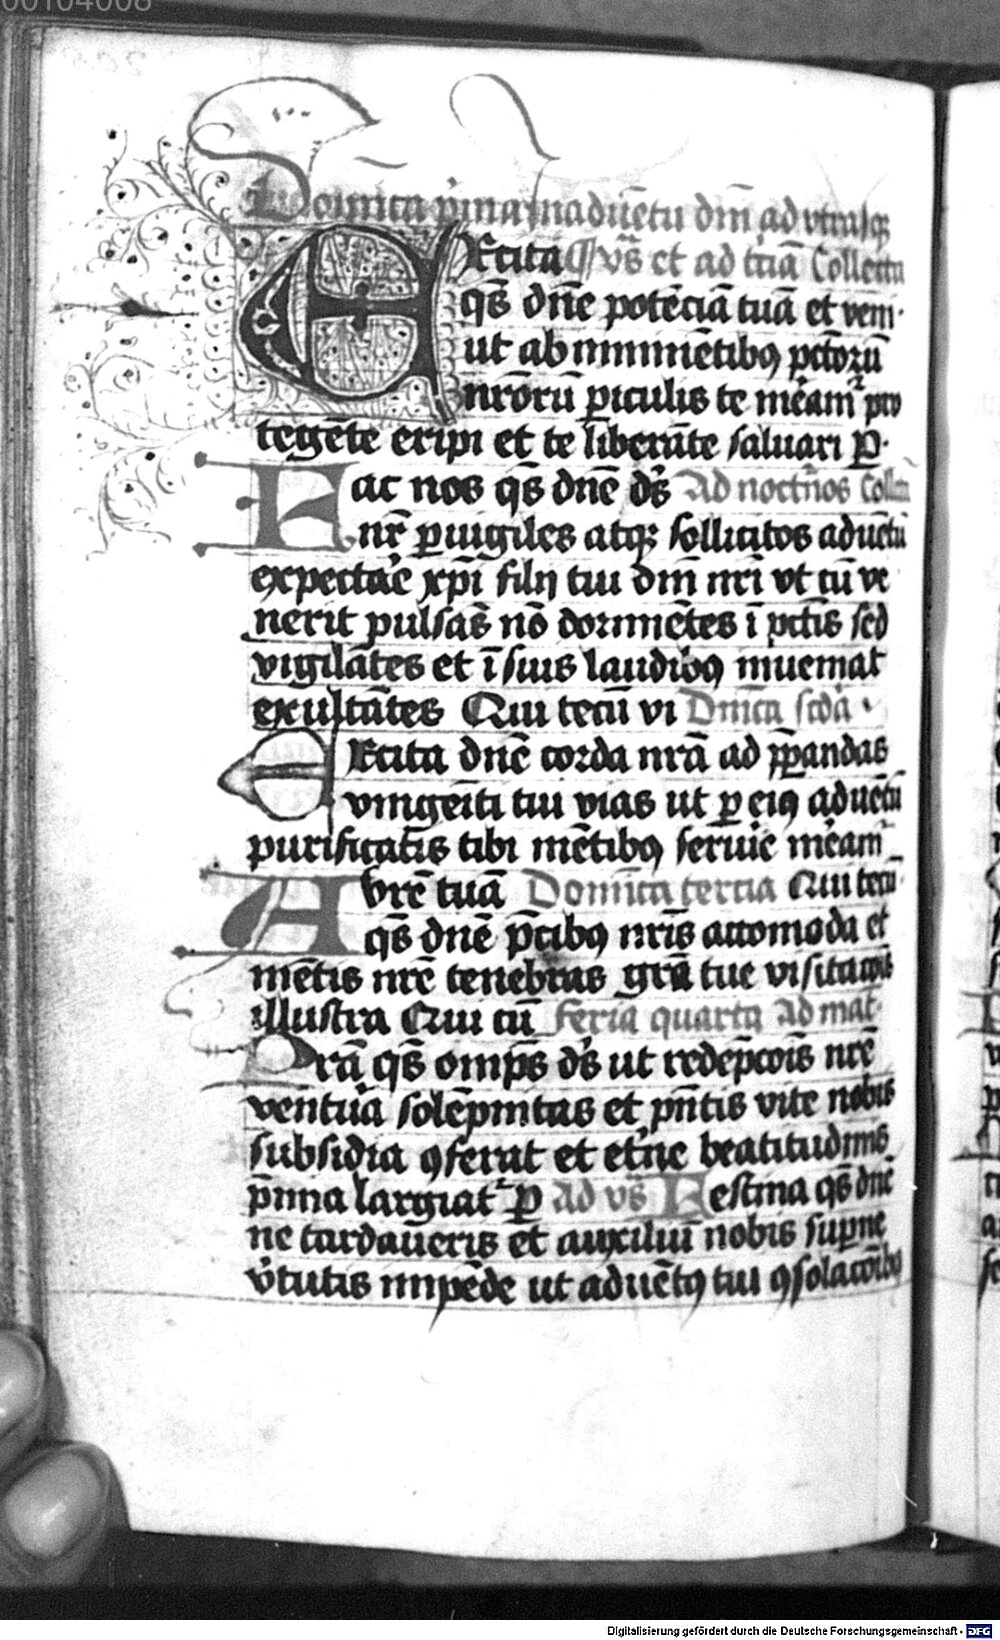 00104008
Dom̅ica p̅ima in adue̅tu dn̅i ad vtrasq̢
Excita v̅s et ad tc̅iā Collecta
qs̅ dn̅e pote̅ciā tuā et veni·
ut ab imminē̅tibꝯ pctōꝝ
nr̅oru̅ ꝑiculis te meam᷑ pro
tege̅te eripi et te libera̅te saluari ꝑ·
Fac nos qs̅ dn̅e ds̅ Ad noctn̅os Coll̅a
nr̅ ꝑuigiles atqꝫ sollicitos adue̅tu̅
expectar̅e xp̅i filij tui dn̅i nr̅i vt cu̅ ve
nerit pulsa̅s no̅ dormie̅tes i̅ pctīs sed
vigila̅tes et i̅ suis laudibꝯ inueniat
exulta̅tes Qui tecu̅ vi Dn̅ica scd̅a ·
Excita dn̅e corda nr̅a ad p̅ꝑandas
vnigeīti tui vias ut ꝑ eiꝯ adue̅tu̅
purificat̅is tibi me̅tibꝯ seruir̅e meam᷑
Aure̅ tuā Domīca tercia Qui tecu·
qs̅ dn̅e p̅cibꝯ nr̅is accomoda et
me̅tis nr̅e tenebras gr̅a tue visitacōis
illustra Qui cu̅ Feria quarta Ad mat·
Pr̅a qs̅ om̅ps ds̅ ut rede̅pcōis nr̅e
ventura sole̅pnitas et pn̅tis vite nobis
subsidia ꝯferat et etn̅e beatitudinis
p̅mia largiat᷑ ꝑ Ad v̅s Festina qs̅ dn̅e
ne tardaueris et auxiliu̅ nobis sup̅ne
v̅tutis impe̅de ut adue̅tꝯ tui ꝯsolacōibꝯ
Digitalisierung gefördert durch die Deutsche Forschungsgemeinschaft - DFG